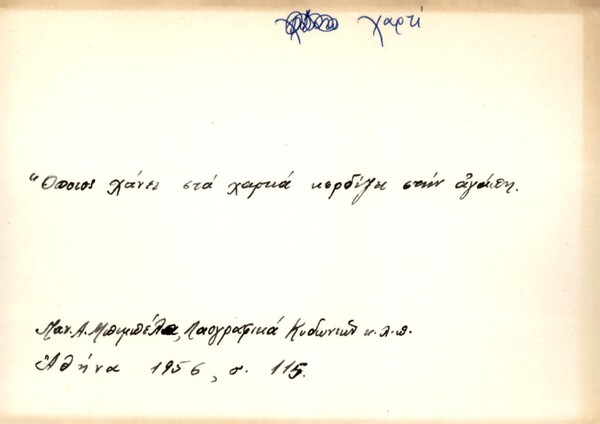 χαρτί
Ὅποιος χάνει στά χαρτιά κερδίζει στήν ἀγάπη.
Παν. Δ. Μπιμπέλα, Λαογραφικά Κυδωνιῶν κ.λ.π.
Ἀθήνα 1956, σ. 115.